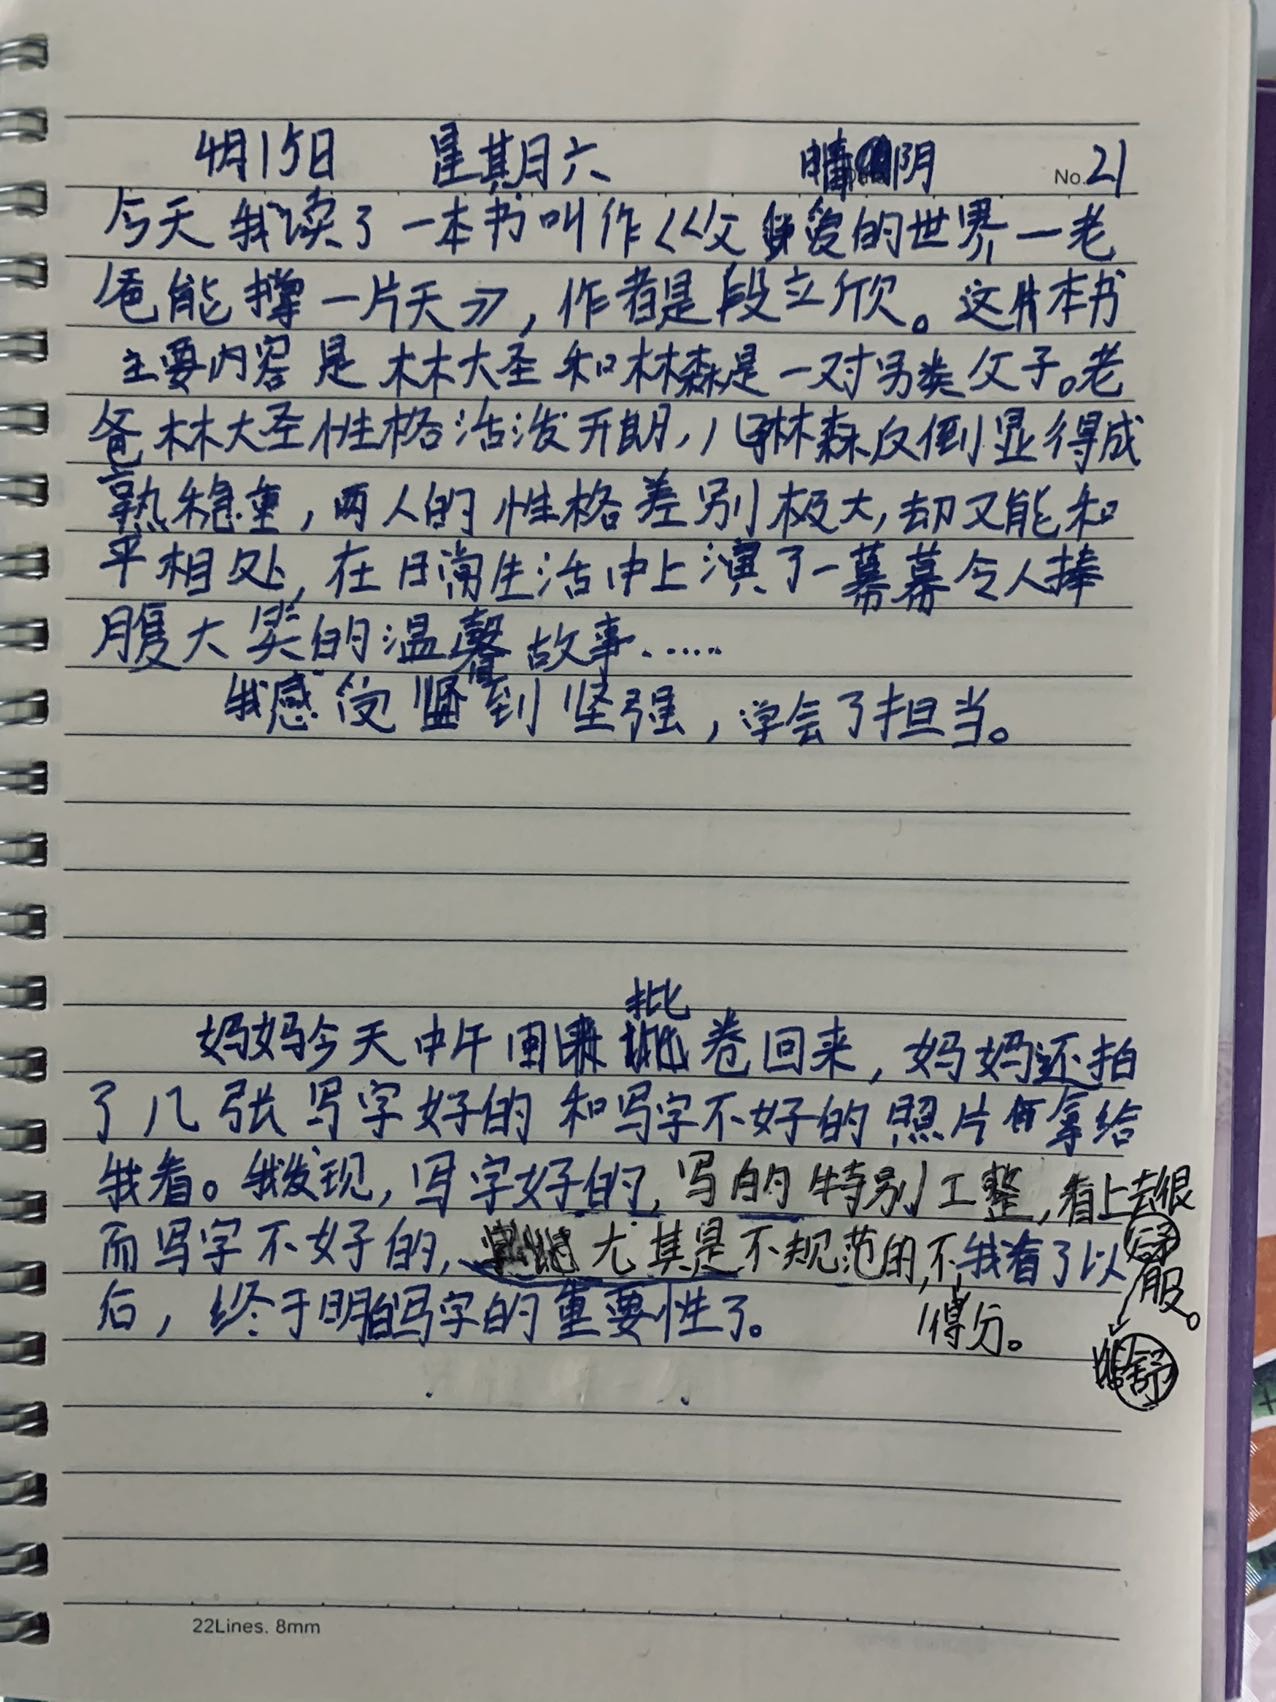 4月15日 星期六 晴阴 No. 21
今天我读了一本书叫作《父爱的世界—老
爸能撑一片天》,作者是段立欣。这本书
主要内容是林大圣和林森是一对另类父子。老
爸林大圣性格活泼开朗,儿子林森反倒显得成
熟稳重,两人的性格差别极大,却又能和
平相处,在日常生活中上演了一幕幕令人捧
腹大笑的温馨故事......
我感受到坚强,学会了担当。
批
妈妈今天中午 卷回来,妈妈还拍
了几张写字好的和写字不好的照片拿给
我看。我发现,写字好的,写的特别工整,看上去很
而写字不好的,尤其是不规范的,不我看了以
舒服。
后,终于明白写字的重要性了。 得分。
舒
22Lines. 8mm